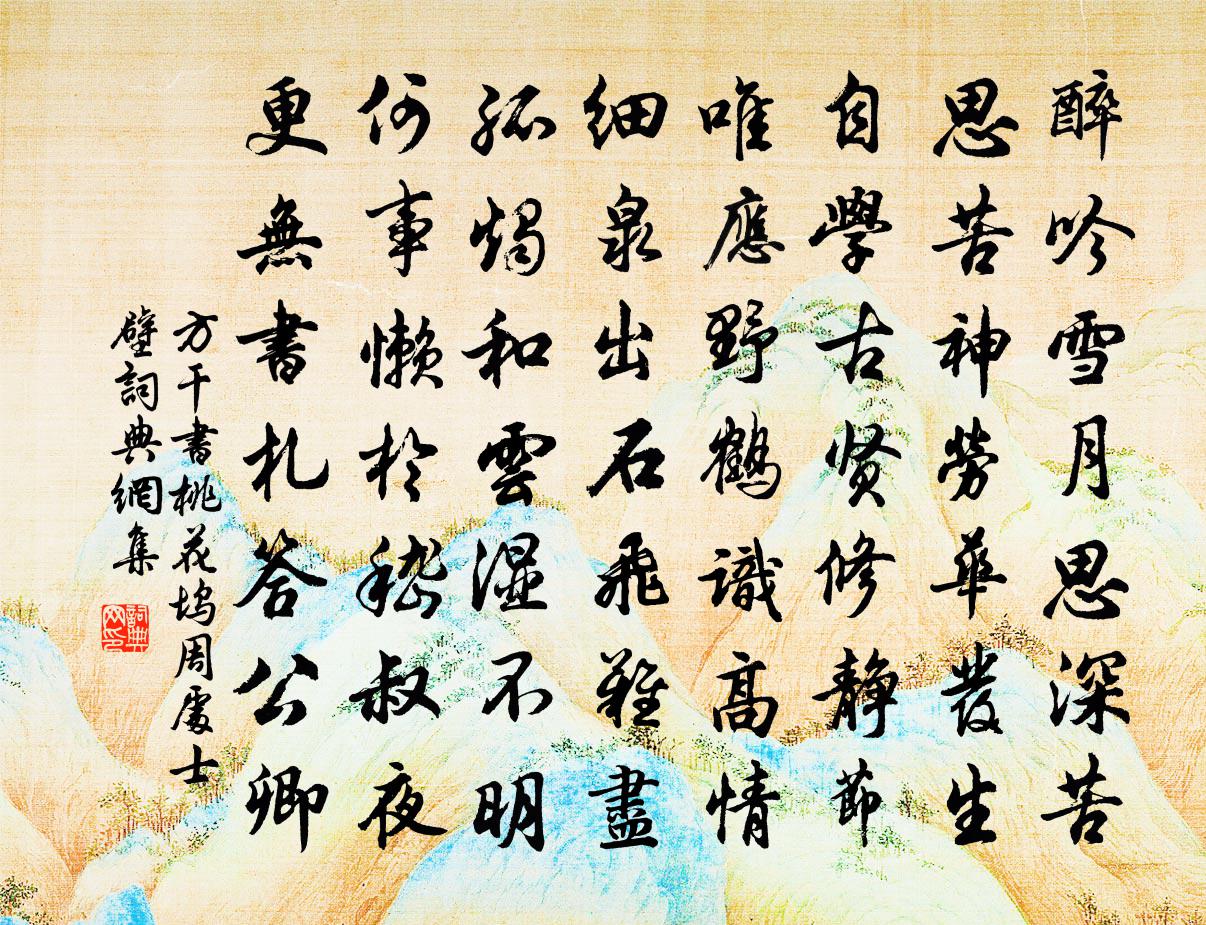 醉吟雪月思深苦
思苦神勞華發生
自學古賢修靜節
唯應野鶴識高情
細泉出石飛難盡
孤燭和雲濕不明
何事懶於嵇叔夜
更無書札答公卿
方干書桃花塢周處士
壁詞典網集
詞典网印